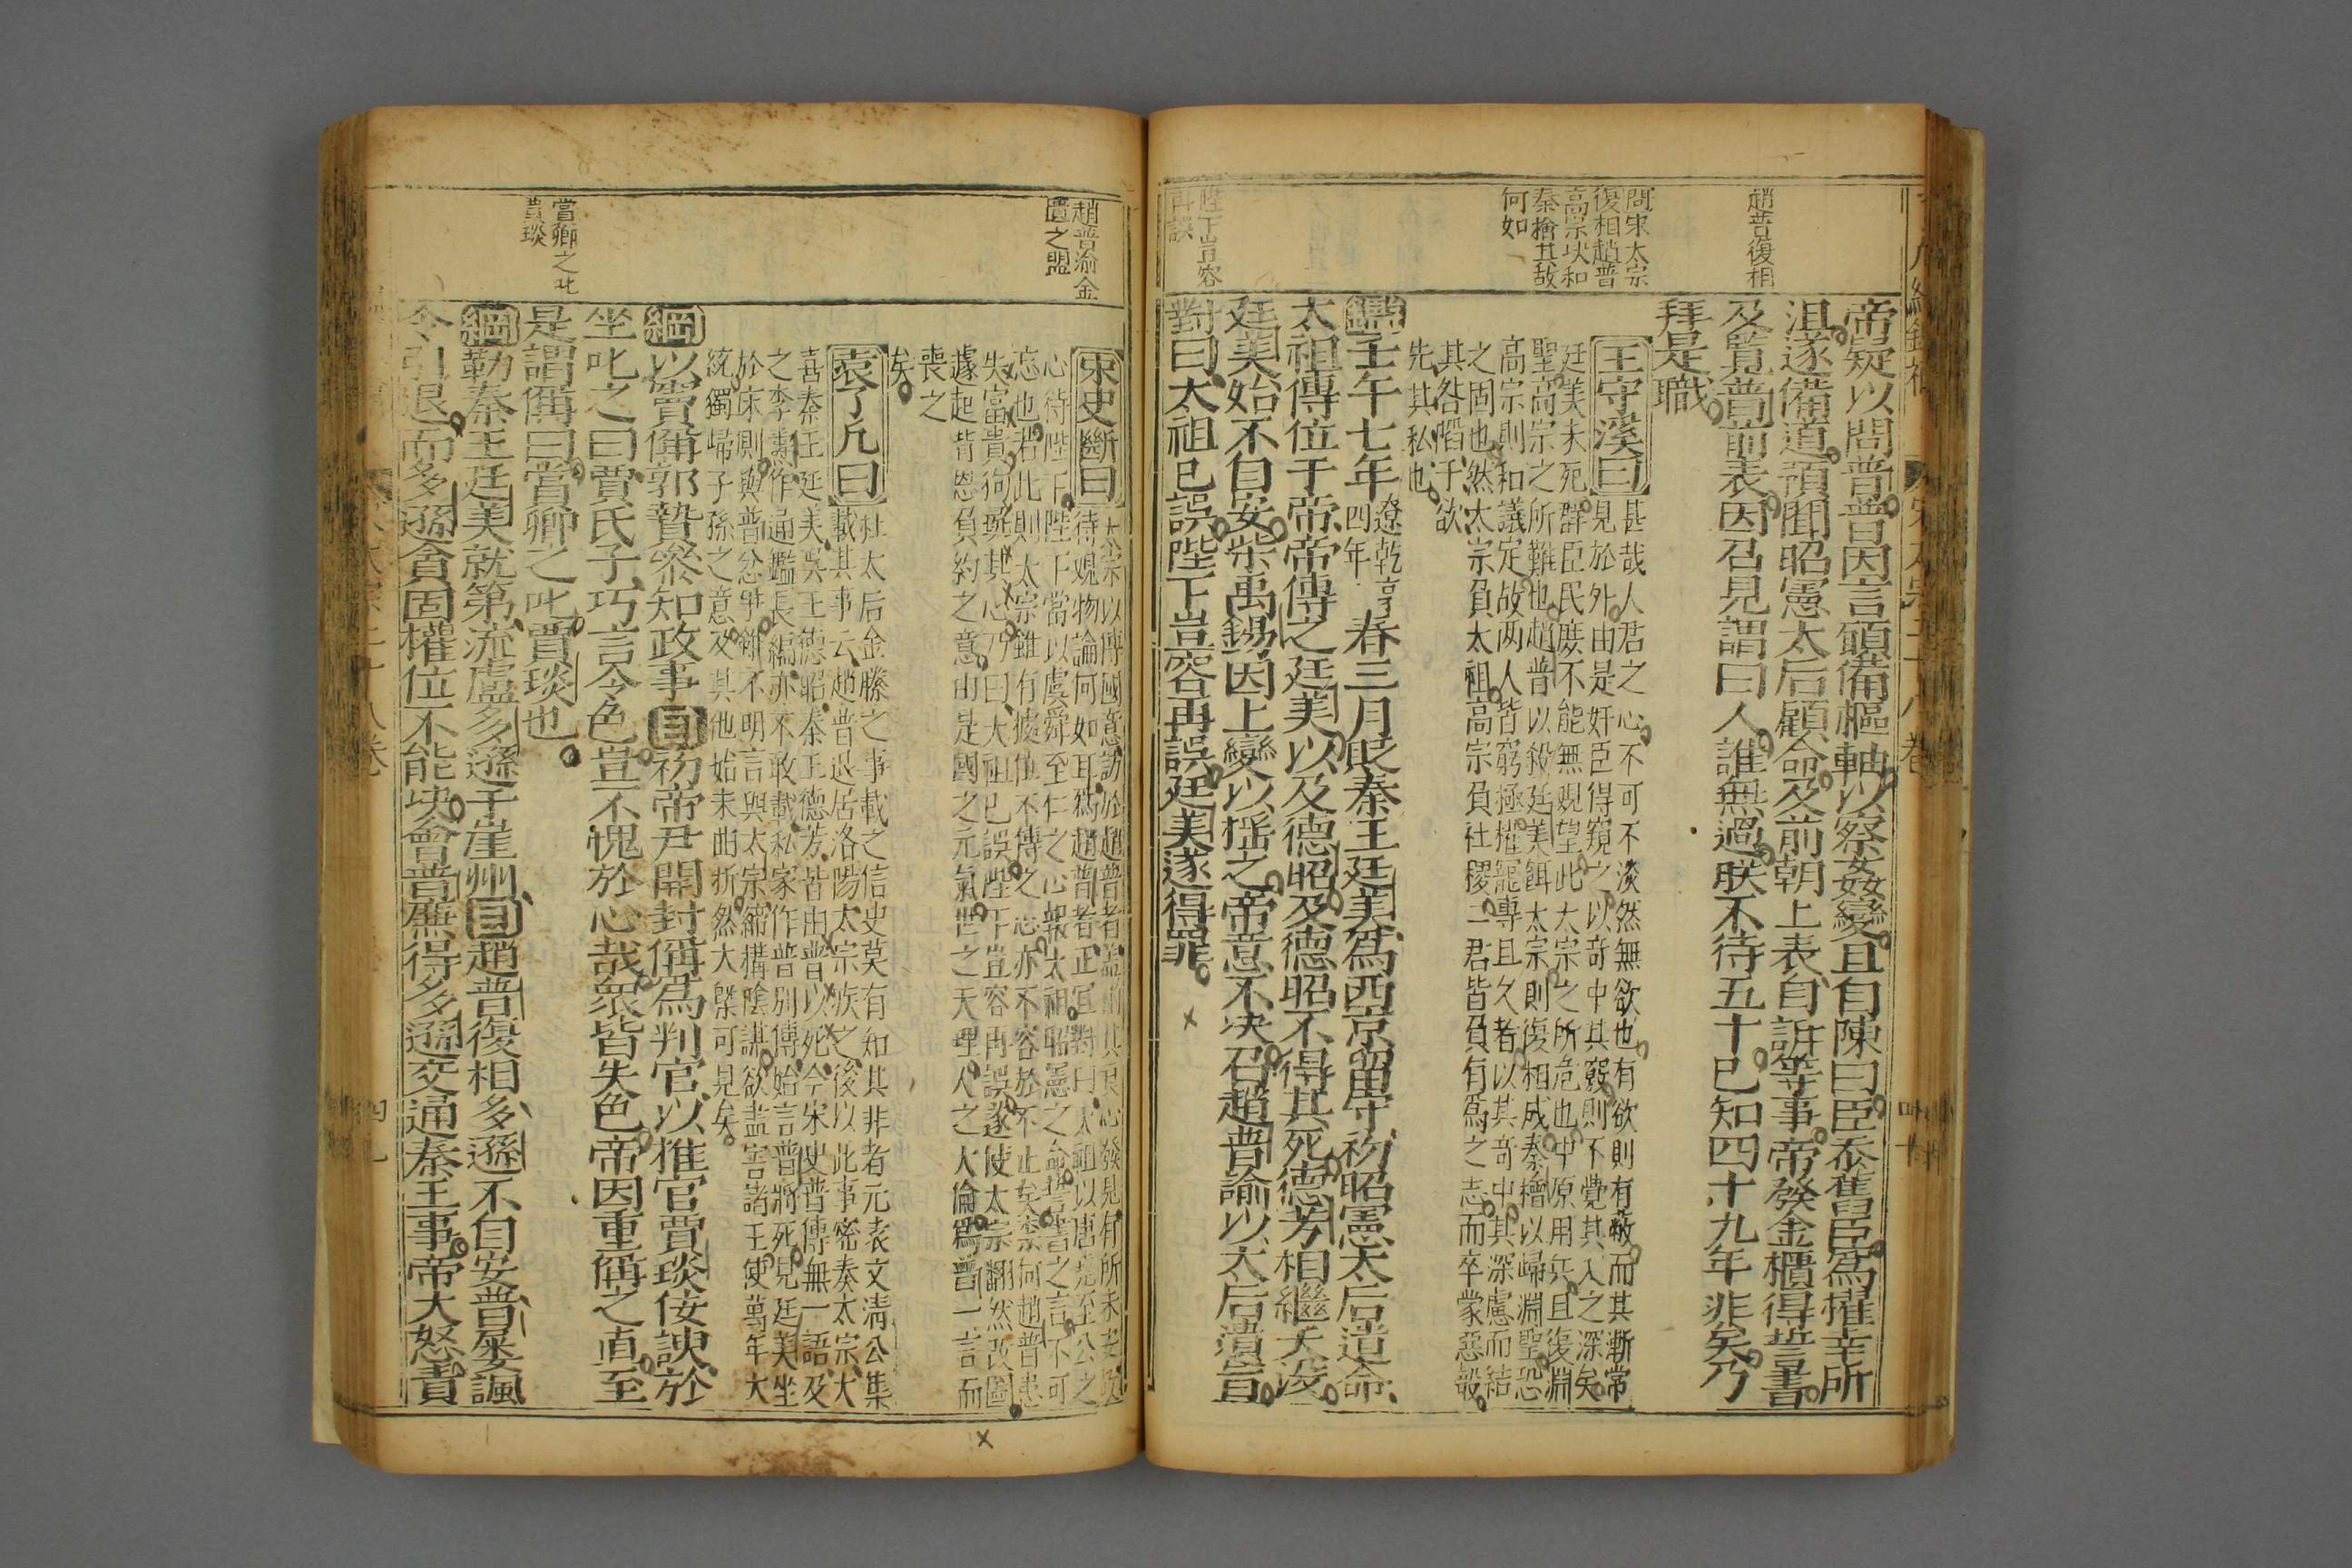 趙普復相
問宋太宗
復相趙普
高宗决和
秦檜其故
何如
陛下豈容
再誤
帝疑以問普普因言願備樞軸以察姦變且自陳曰臣忝舊臣爲權幸所
沮遂備道預聞昭憲太后顧命及前朝上表自訴等事帝發金櫃得誓書
及覧普前表因召見謂曰人誰無過朕不待五十已知四十九年非矣乃
拜是職
王守溪曰甚哉人君之心不可不淡然無欲也有欲則有蔽而其漸常
見於外由是奸臣得窺之以奇中其竅則不覺其入之深矣
廷美未死群臣民庶不能無覬望此太宗之所危也中原用兵且復淵
聖高宗之所難也趙普以殺廷美餌太宗則復相成秦檜以歸淵聖恐
高宗則和議定故两人皆窮極權寵專且久者以其奇中其深慮而結
之固也然太宗負太祖高宗負社稷二君皆負有爲之志而卒蒙惡聲
其咎㗖于欲
先其私也
鑑壬午七年遼乾亨四年春三月貶秦王廷美爲西京留守初昭憲太后遺命
太祖傳位于帝帝傳之廷美以及德昭及德昭不得其死德芳相繼夭没
廷美始不自安柴禹錫因上變以揺之帝意不决召趙普諭以太后遺旨
對曰太祖已誤陛下豈容再誤廷美遂得罪
趙普渝金
匱之盟
當卿之叱
賈琰
宋史斷曰太宗以傳國意訪於趙普者葢前其良心發見有所未妄故
待覘物論何如耳爲趙普者正宜對曰太祖以唐堯至公之
心待陛下陛下當以虞舜至仁之心報太祖昭憲之命誓書之言不可
忘也若此則太宗雖有疲他不傳之志亦不容於不止矣柰何趙普患
失富貴狥與其心乃曰太祖已誤陛下豈容再誤遂使太宗翻然改圖
遽起背恩負約之意由是國之元氣世之天理人之大倫爲普一言而
喪之
矣
袁了凡曰杜太后金縢之事載之信史莫有知其非者元袁文清公集
載其事云趙普退居洛陽太宗疾之後以此事密奏太宗大
喜秦王廷美吳王德昭秦王德芳皆由普以死今宋史普傳無一語及
之李燾作通鑑長編亦不敢載私家作普別傳始言普將死見廷美坐
於床側與普忿爭雖不明言與太宗締搆陰謀欲盡害諸王使萬年大
統獨歸子孫之意及其他始末曲折然大槩可見矣
綱以竇偁郭贄參知政事目初帝尹開封偁爲判官以推官賈琰佞諛於
坐叱之曰賈氏子巧言令色豈不愧於心哉衆皆失色帝因重偁之直至
是謂偁曰當卿之叱賈琰也
綱勒秦王廷美就第流盧多遜于崖州目趙普復相多遜不自安普屡諷
令引退而多遜貪固權位不能决會普廉得多遜交通秦王事帝大怒責